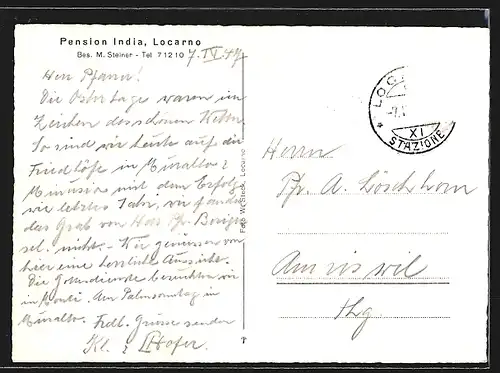 Pension India, Locarno
Bes. M. Steiner - Tel 71210
7. IV. 47.
Herr Pfarrer!
Die Ostertage waren im
Zeichen des schönen Wetters.
So sind wir heute auf die
Friedhöfe in Muralto &
Minusio mit dem Erfolg
wie letztes Jahr, wir fanden
das Grab von Hrn Pfr.
sel. nicht. - Wir geniessen von
hier eine herrliche Aussicht.
Die Gottesdienste besuchten wir
in Monti. Am Palmsonntag in
Muralto. Frdl. Grüsse senden
Kl. & Hofer.
Foto W. Steck, Locarno
LOC
XI
STAZIONE
Herrn
Pfr. A. Löschhorn
Amriswil
Thg.